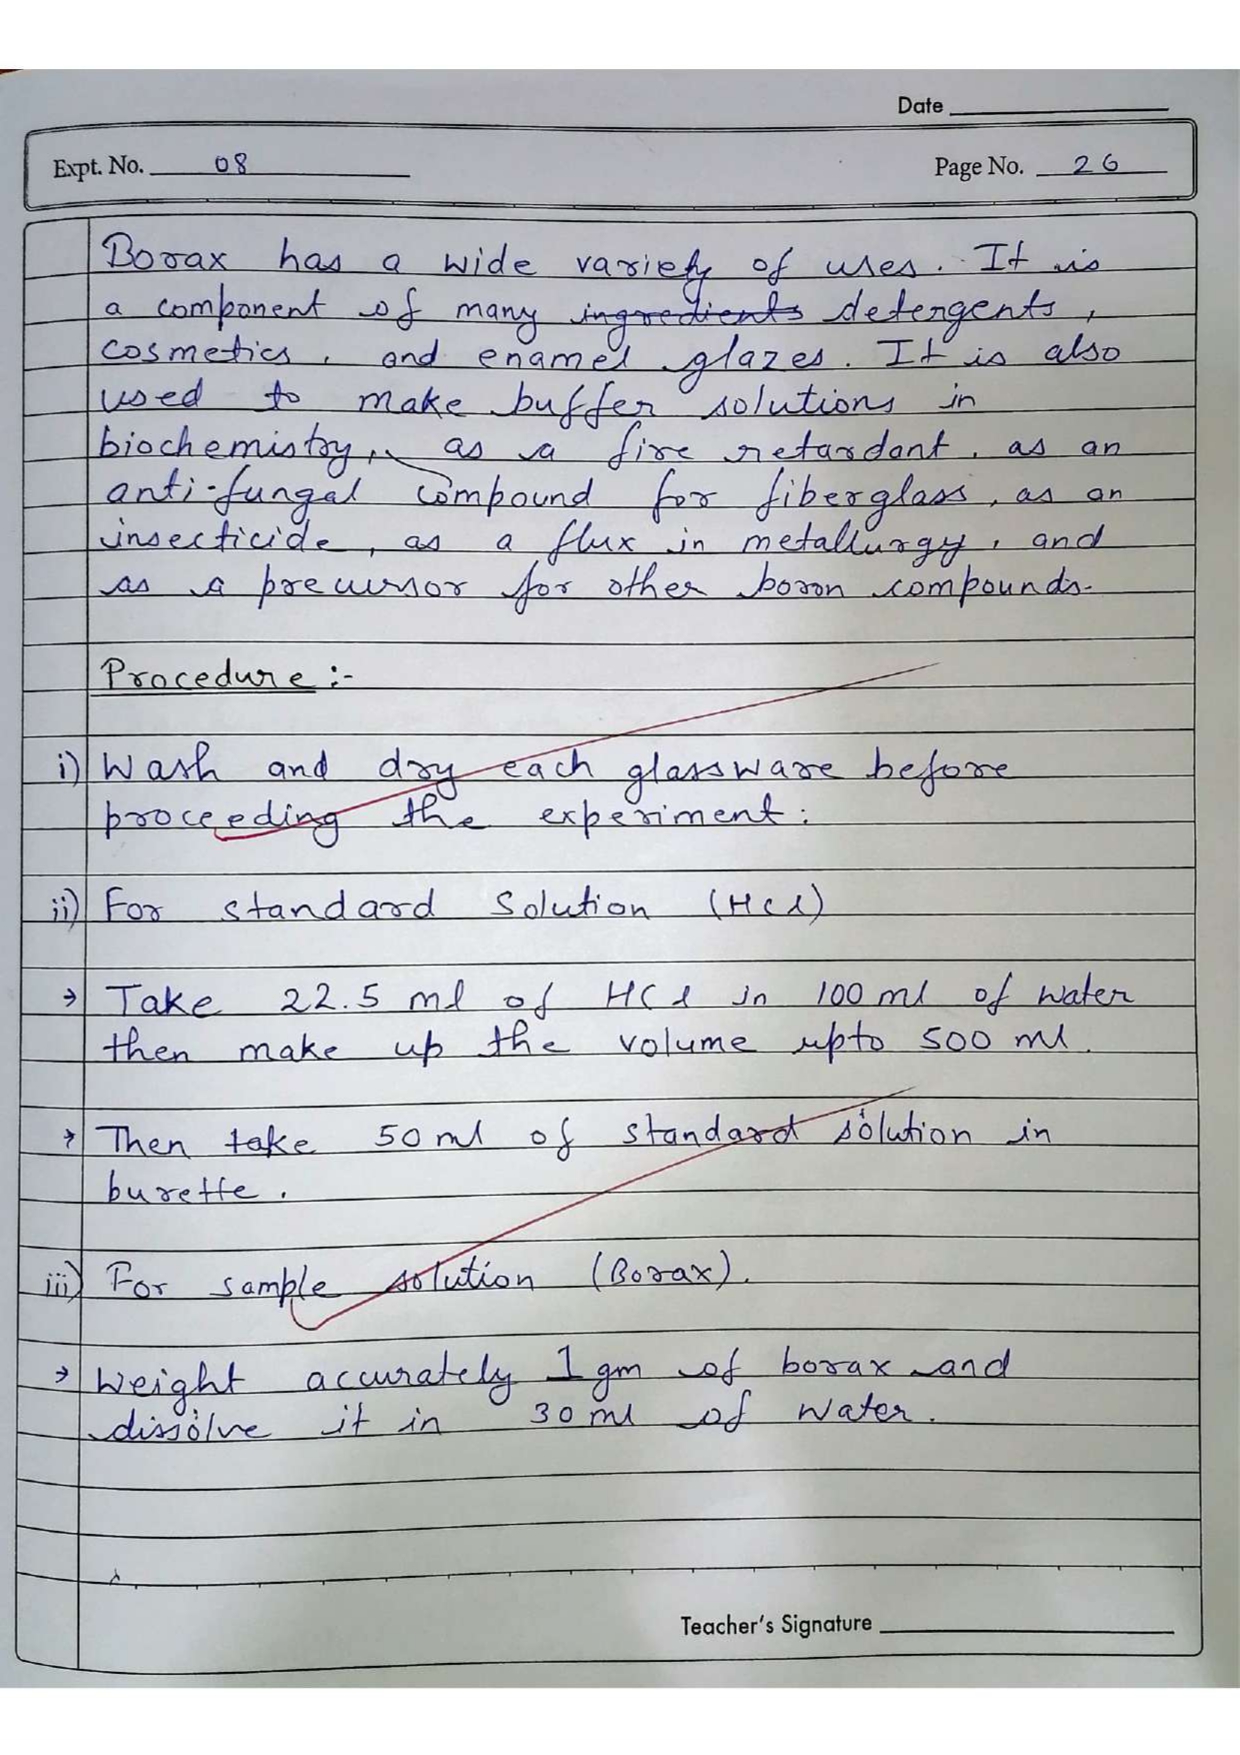 Date
Expt. No. 08
Page No. 26
Borax has a wide variety of uses. It is
a component of many ingredients detergents,
cosmetics, and enamel glazes. It is also
used to make buffer solutions in
biochemistry, as a fire retardant, as an
anti-fungal compound for fiberglass, as an
insecticide, as a flux in metallurgy, and
as a precursor for other boron compounds.
Procedure :-
i) Wash and dry each glassware before
proceeding the experiment.
ii) For standard solution (HCl)
→ Take 22.5 ml of HCl in 100 ml of water
then make up the volume upto 500 ml.
→ Then take 50 ml of standard solution in
burette.
iii) For sample solution (Borax).
→ Weight accurately 1 gm of borax and
dissolve it in 30 ml of water.
Teacher's Signature